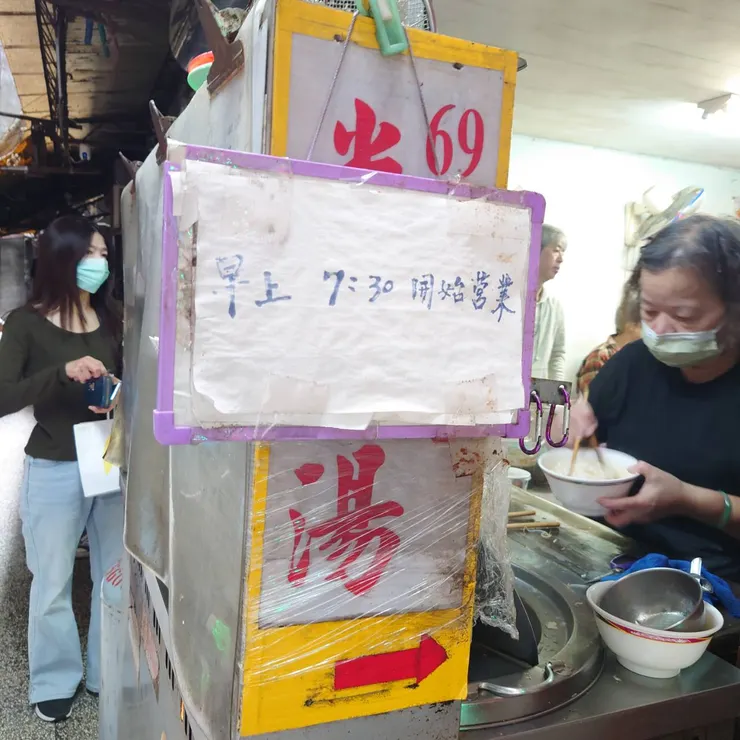 69
早上 7:30 開始營業
湯